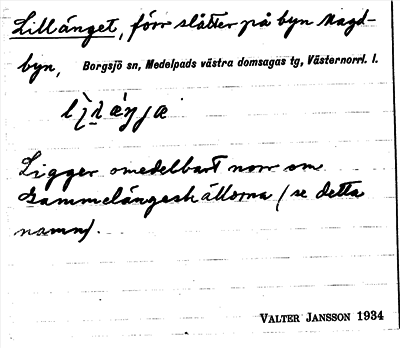 Lillänget, förr slåtter på byn Magd-
byn, Borgsjö sn, Medelpads västra domsagas tg, Västernorrl. l.
Ligger omedelbart norr om
Gammelängeshällorna (se detta
namn).
VALTER JANSSON 1934